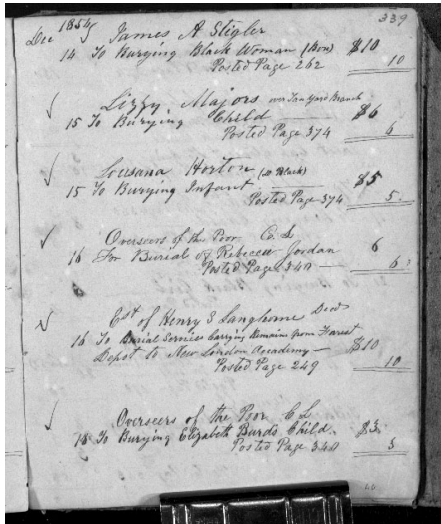 339
Dec 1854 James A Stigler
14 To Burying Black Woman (Box) $10
Posted Page 262 10
Lizzy Majors over Tan Yard Branch
15 To Burying Child $6
Posted Page 374 6
Lousana Horton (Black)
15 To Burying Infant $5
Posted Page 374 5
Overseers of the Poor C. L
16 For Burial of Rebecca Jordan 6
Posted Page 340 6
Est of Henry S Langhorne Decd
16 To Burial Services Carrying Remains from Forest
Depot to New London Academy $10
Posted Page 249 10
Overseers of the Poor C L
18 To Burying Elizabeth Burds Child $3
Posted Page 340 3